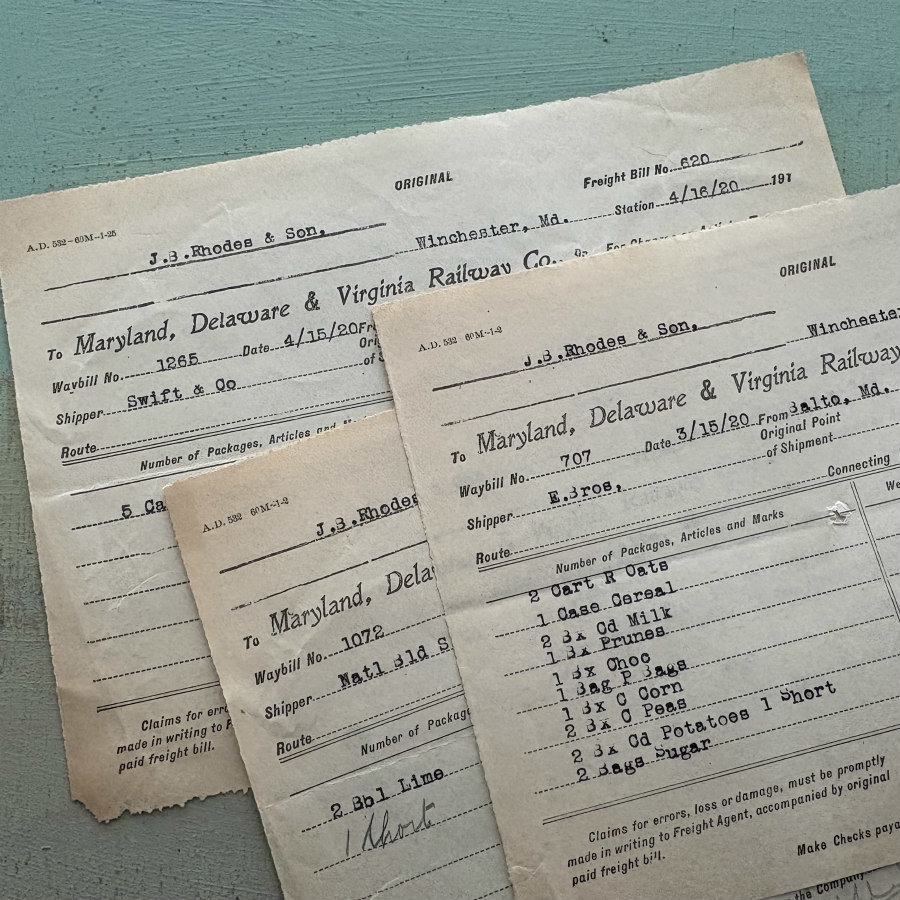 ORIGINAL
Freight Bill No. 620
A.D. 532-60M-1-25
J.B.Rhodes & Son,
Winchester, Md.
Station 4/16/20 191
To Maryland, Delaware & Virginia Railway Co.,
Waybill No. 1265 Date 4/15/20
Shipper Swift & Co
of
Route
Number of Packages, Articles and
5 Ca
Claims for
made in writing to
paid freight bill.
A.D. 532 60M-1-2
J.B.Rhodes
To Maryland, Dela
Waybill No. 1072
Shipper Natl Bld S
Route
Number of Package
2 Bbl Lime
1 Short
ORIGINAL
A.D. 532 60M-1-2
J.B.Rhodes & Son,
Winchester
To Maryland, Delaware & Virginia Railway
Waybill No. 707 Date 3/15/20 From Balto, Md.
Original Point
Shipper E.Bros, of Shipment
Route Connecting
Number of Packages, Articles and Marks We
2 Cart R Oats
1 Case Cereal
2 Bx Cd Milk
1 Bx Prunes
1 Bx Choc
1 Bag P Bags
1 Bx C Corn
2 Bx C Peas
2 Bx Cd Potatoes 1 Short
2 Bags Sugar
Claims for errors, loss or damage, must be promptly
made in writing to Freight Agent, accompanied by original
paid freight bill.
Make Checks paya
the Company